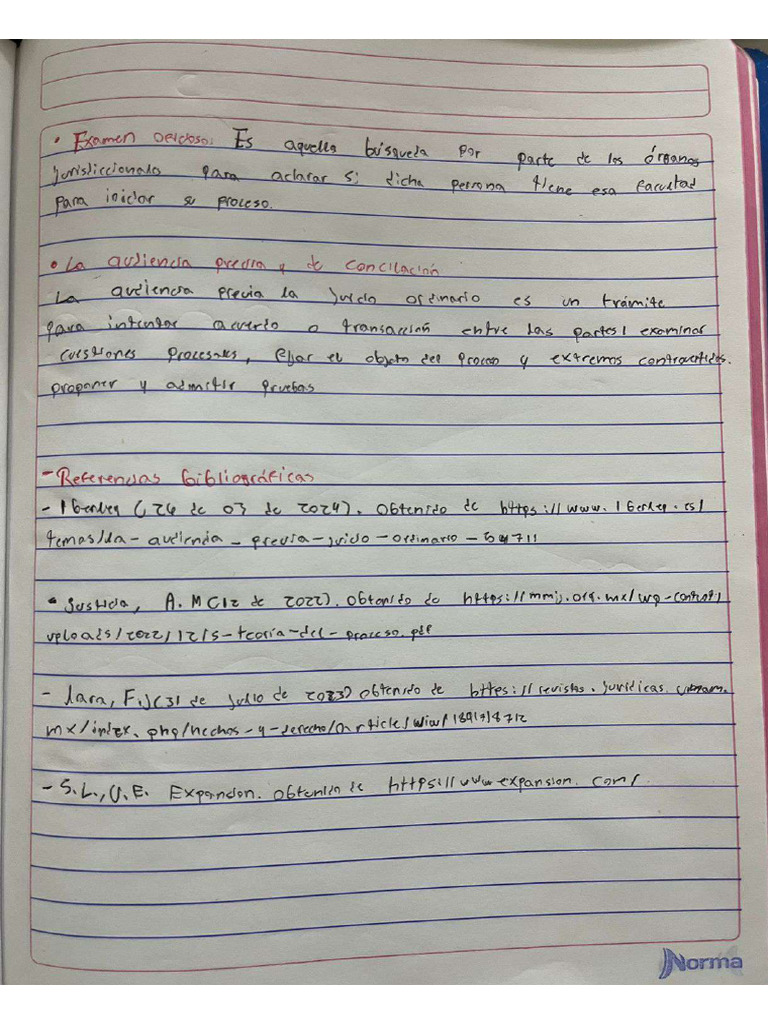 • Examen oficioso: Es aquella búsqueda por parte de los órganos
jurisdiccionales para aclarar si dicha persona tiene esa facultad
para iniciar su proceso.
• La audiencia previa y de conciliación
La audiencia previa la juicio ordinario es un trámite
para intentar acuerdo o transacción entre las partes, examinar
cuestiones procesales, fijar el objeto del proceso y extremos controvertidos.
proponer y admitir pruebas
- Referencias bibliográficas
- (26 de 03 de 2024). Obtenido de https://www.
temas/la-audiencia-previa-juicio-ordinario-
• Justicia, A. M (12 de 2022). Obtenido de https://mmij.org.mx/wp-content/
uploads/2022/12/5-teoria-del-proceso.pdf
- Lara, F. J (31 de julio de 2023) Obtenido de https://revistas.juridicas.unam.
mx/index.php/hechos-y-derecho/article/view/
- S.L., U.E. Expansion. Obtenido de https://www.expansion.com/
Norma